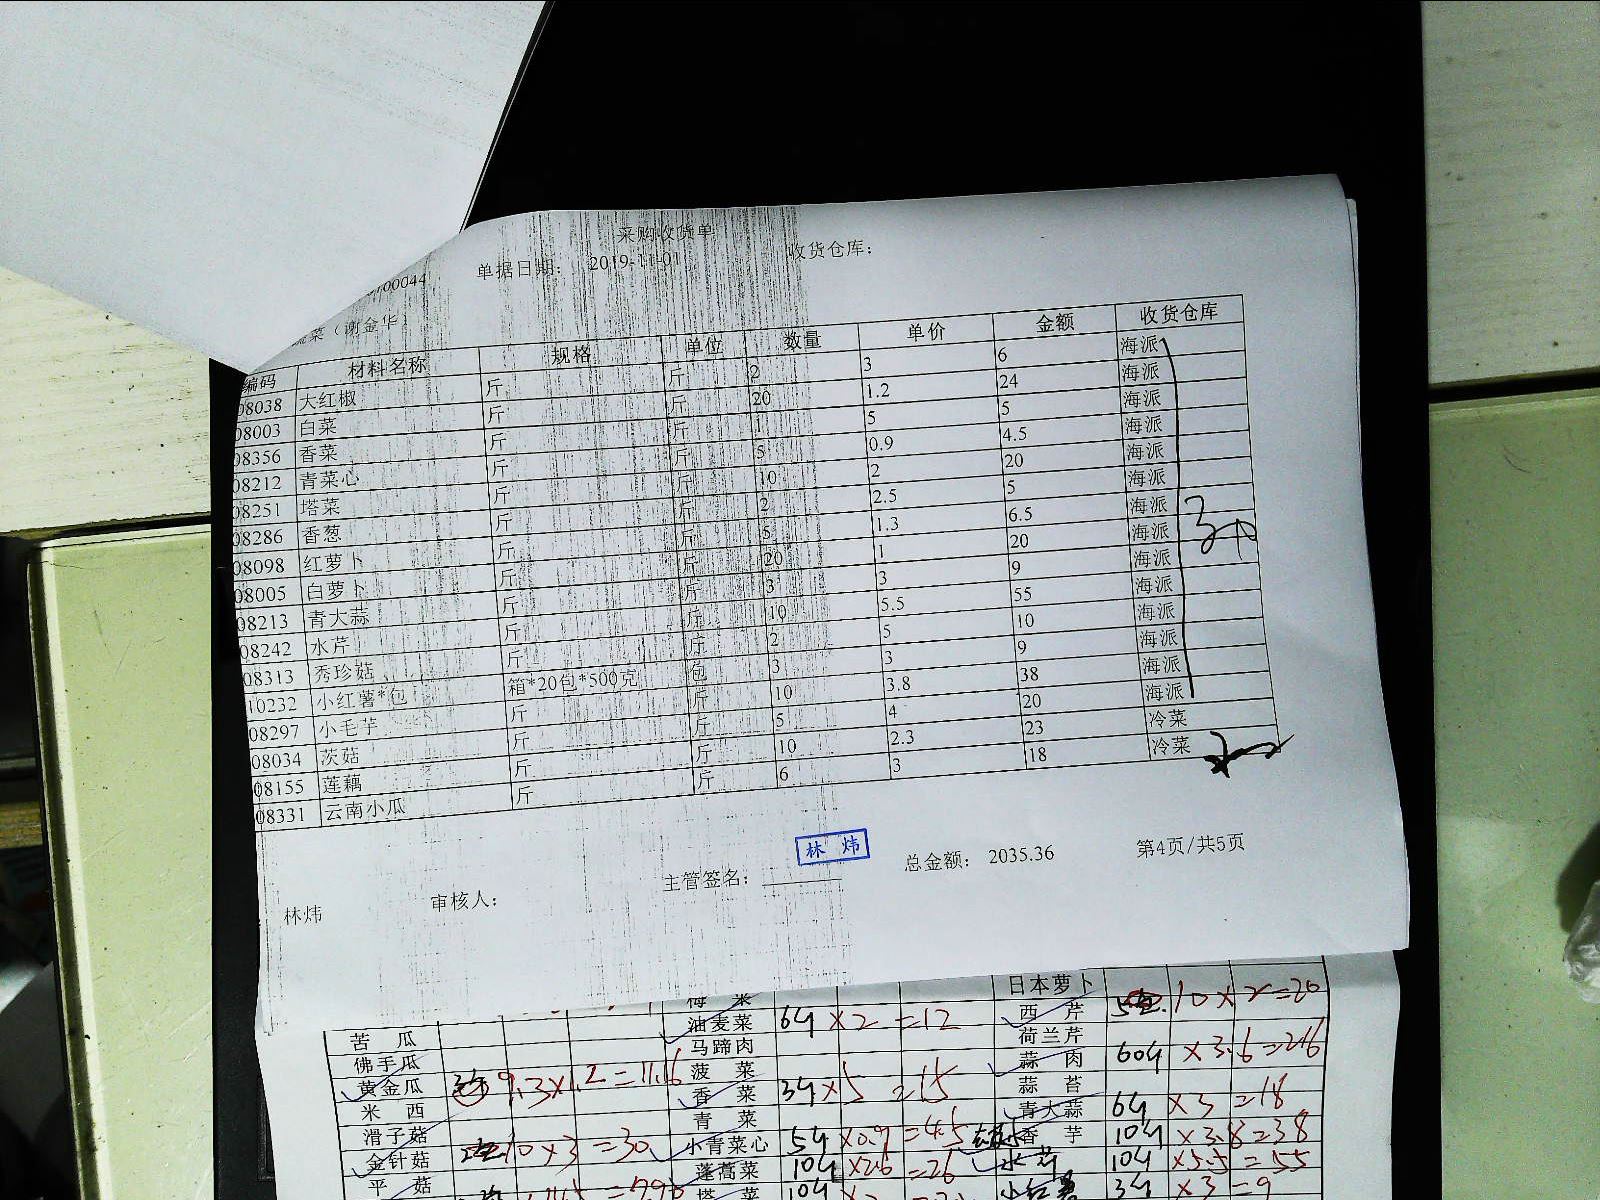 采购收货单
00044 单据日期: 2019-11-01 收货仓库:
蔬菜(谢金华)
编码 材料名称 规格 单位 数量 单价 金额 收货仓库
08038 大红椒 斤 斤 2 3 6 海派
08003 白菜 斤 斤 20 1.2 24 海派
08356 香菜 斤 斤 1 5 5 海派
08212 青菜心 斤 斤 5 0.9 4.5 海派
08251 塔菜 斤 斤 10 2 20 海派
08286 香葱 斤 斤 2 2.5 5 海派
08098 红萝卜 斤 斤 5 1.3 6.5 海派
08005 白萝卜 斤 斤 20 1 20 海派
08213 青大蒜 斤 斤 3 3 9 海派
08242 水芹 斤 斤 10 5.5 55 海派
08313 秀珍菇 斤 斤 2 5 10 海派
10232 小红薯*包 箱*20包*500克 包 3 3 9 海派
08297 小毛芋 斤 斤 10 3.8 38 海派
08034 茨菇 斤 斤 5 4 20 海派
08155 莲藕 斤 斤 10 2.3 23 冷菜
08331 云南小瓜 斤 斤 6 3 18 冷菜
林炜 审核人: 主管签名: 林 炜 总金额: 2035.36 第4页/共5页
梅 菜 日本萝卜
苦 瓜 油麦菜 6斤 ×2 =12 西 芹 10×2=20
佛手瓜 马蹄肉 荷兰芹
黄金瓜 9.3×1.2=11.16 菠 菜 蒜 肉 60斤 ×3.6=216
米 西 香 菜 3斤×5 =15 蒜 苔
滑子菇 青 菜 青大蒜 6斤 ×3 =18
金针菇 10×3=30 小青菜心 5斤 ×0.9=4.5 香 芋 10斤 ×3.8=38
平 菇 蓬蒿菜 10斤 ×2.6 =26 水芹 10斤 ×5.5=55
塔 菜 10斤 小红薯 3斤 ×3=9